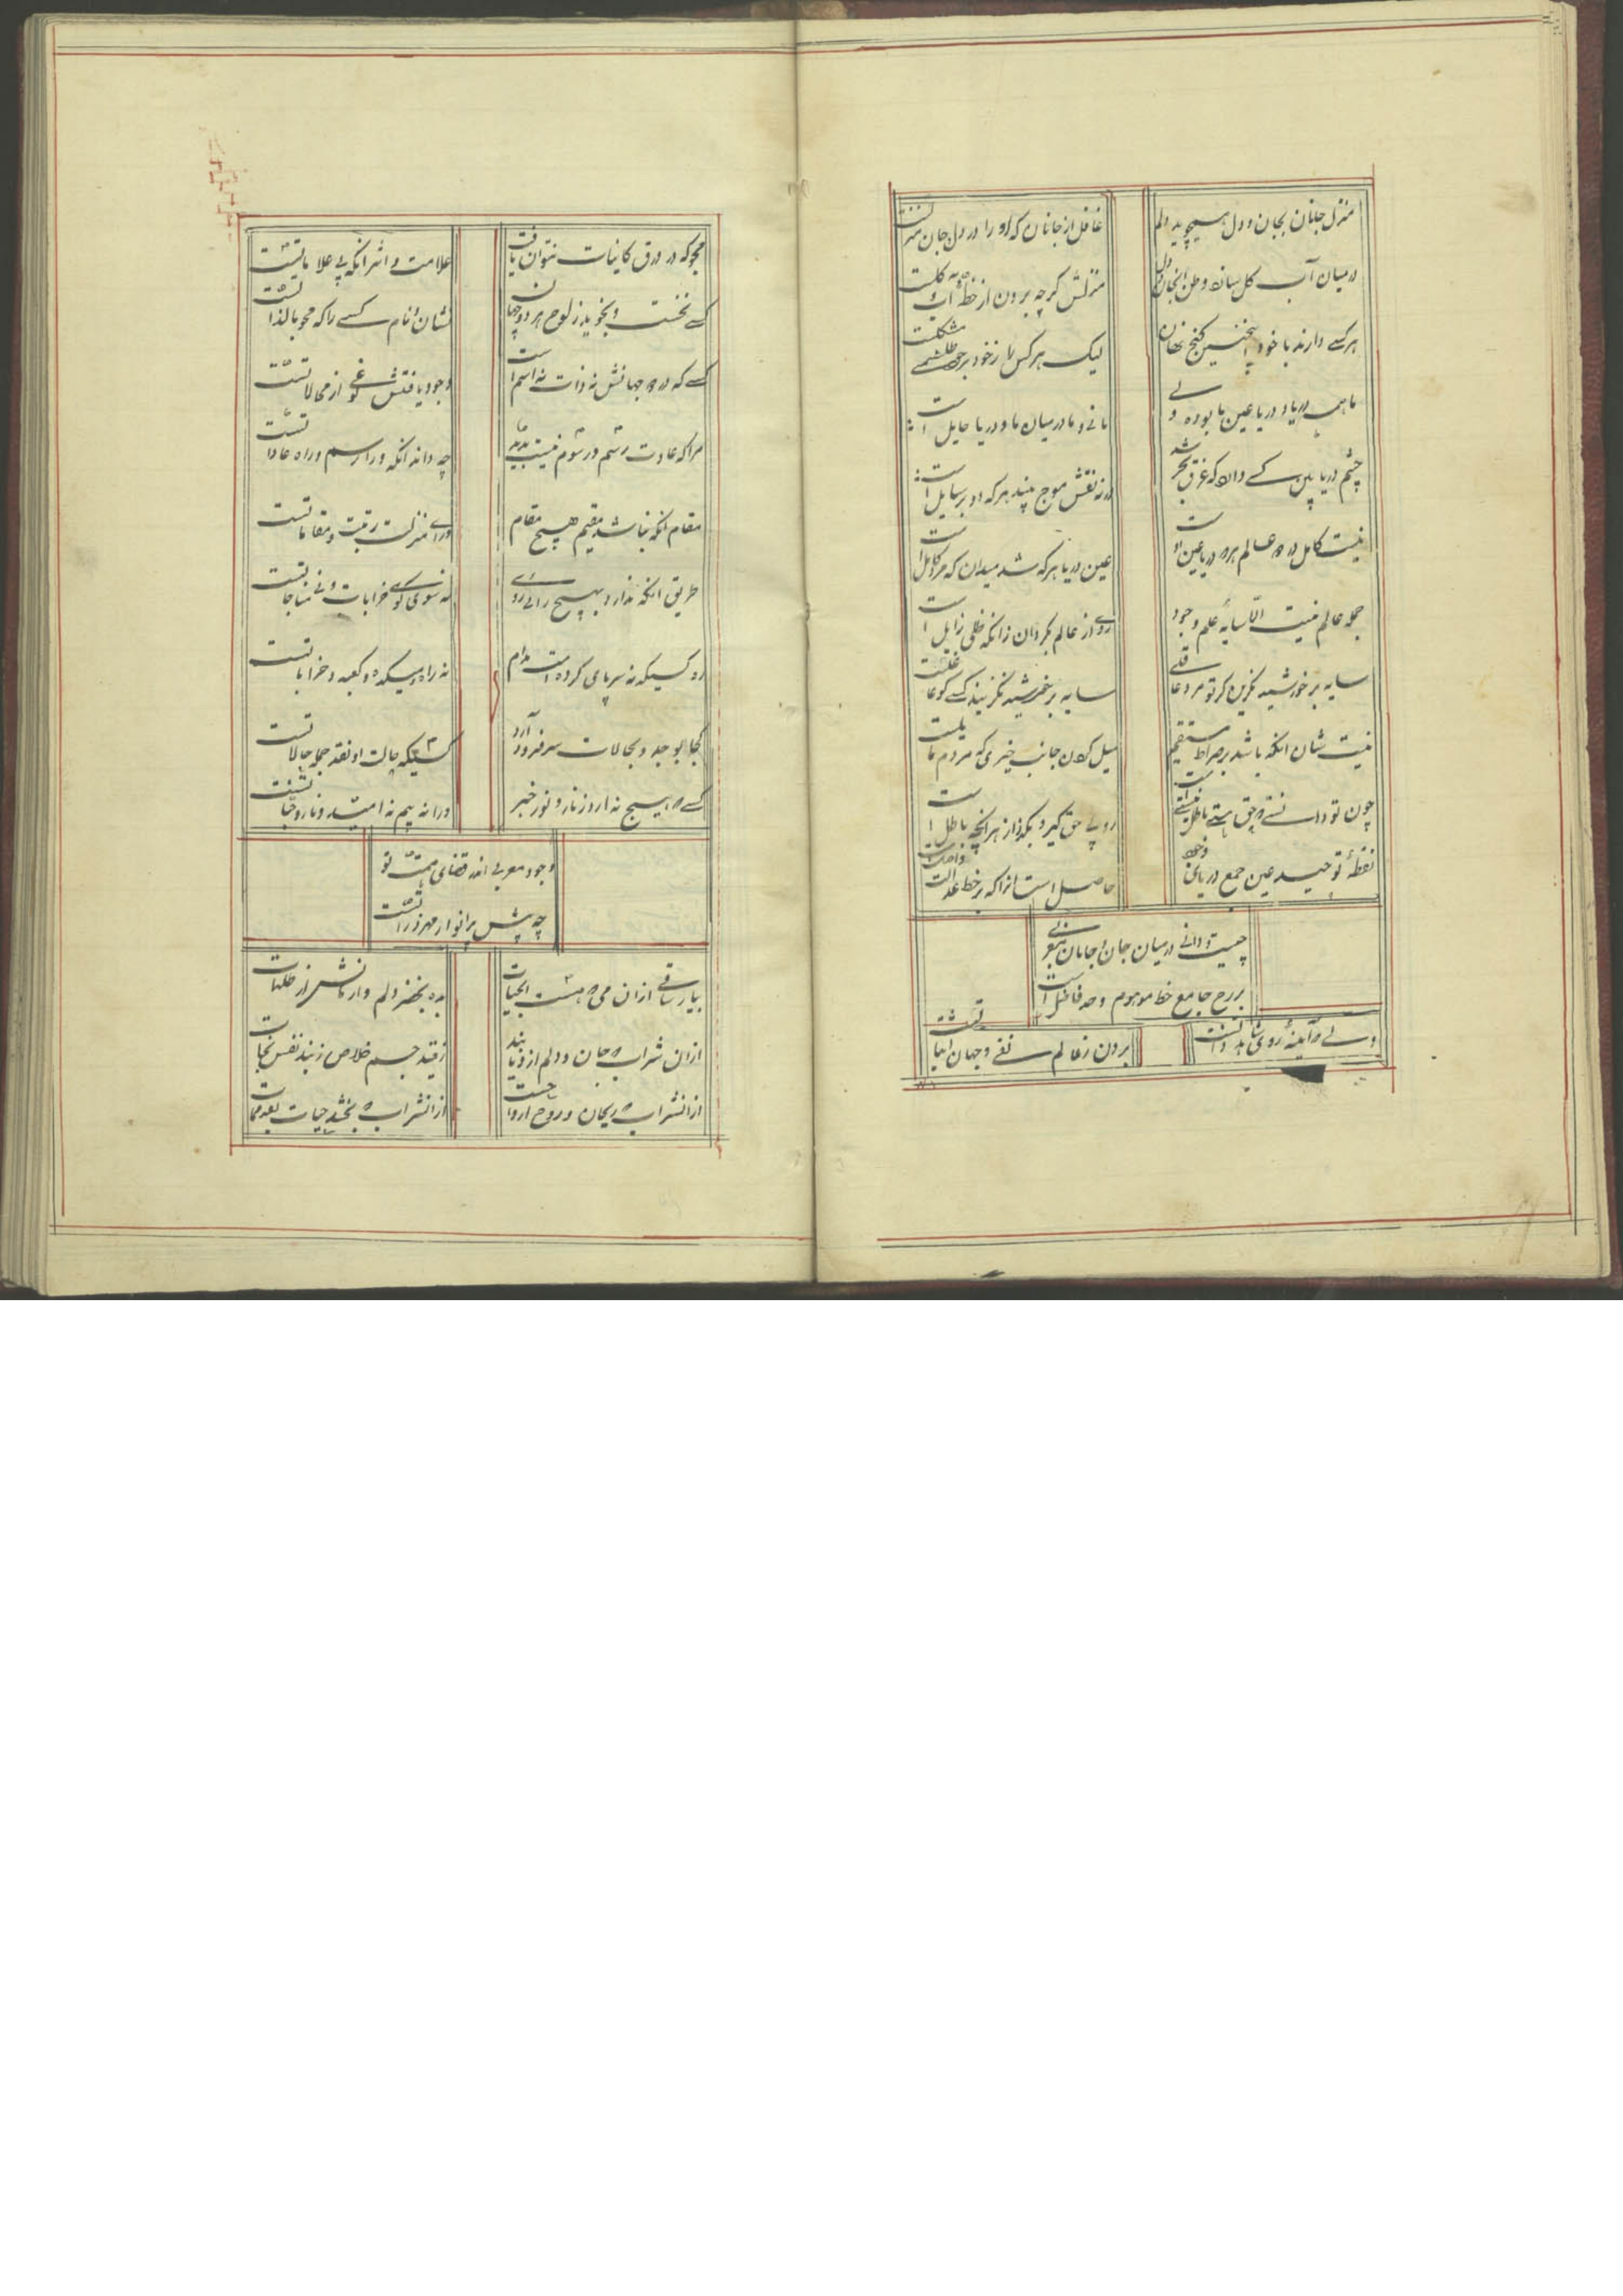 منزل جانان بجان و دل همیجوید دلم
غافل از جانان که او را در دل و جان منزلست
در میان آب و گل سازد وطن آنجان دل
منزلش گرچه برون از خطهٔ آب و گلست
هر کسی دارند با خود اینچنین گنج نهان
لیک هر کس را ز خود بر وی طلسمی مشکلست
ما همه دریا و دریا عین ما بوده ولی
مائی ما در میان ما و دریا حایل است
چشم دریا بین کسی دارد که غرق بحر شد
ورنه نقش موج بیند هر که او بر ساحل است
نیست کامل در دو عالم هر که دریا عین اوست
عین دریا هر که شد میدان که مرد کامل است
جمله عالم نیست الا سایهٔ علم وجود
روی از عالم بگردان زانکه ظلی زایل است
سایه بر خورشید مگزین گر تو مرد عاقلی
سایه بر خورشید نگزیند کسی کو عاقلست
نیست شان آنکه باشد بر صراط مستقیم
میل کردن جانب چیزی که مردم مایلست
چون تو دانستی که حق هستی باطل نیستی است
رو پی حق گیر و بگذر از هر آنچه باطل است
نقطهٔ توحید عین جمع دریای وجود
حاصل است آنرا که بر خط عدالت واصلست
چیست دانی در میان جان و جانان مغربی
برزخ جامع خط موهوم و حد فاصل است
ولی که آینهٔ روی شاهد ذاتست
برون ز عالم نفی و جهان اثباتست
مجو که در ورق کاینات نتوان یافت
علامت و اثر آنکه بی علاماتست
کسی نجست و نجوید ز لوح هر دو جهان
نشان و نام کسی را که محو بالذاتست
کسی که در دو جهانش نه ذات نه اسم است
وجود یافتنش گوئی از محالاتست
مرا که عادت و رسم و رسوم نیست پدید
چه داند آنکه ورا رسم و راه عاداتست
مقام آنکه نباشد مقیم هیچ مقام
ورای منزلت و رتبت و مقاماتست
طریق آنکه ندارد بهیچ رائی روی
نه سوی کوی خرابات و نی مناجاتست
ره کسیکه نه سر پای کرده است مدام
نه راه میکده و کعبه و خراباتست
کجا بوجد و بحالات سر فرود آرد
کسیکه حالت او نقد جمله حالاتست
کسی که هیچ ندارد ز نار و نور خبر
ورا نه بیم نه امید نار و جناتست
وجود مغربی اندر قضای همت تو
چه پیش پرانوار مهر ذراتست
بیار ساقی از آن می که هست آبحیات
بده بخضر دلم وارهانش از ظلمات
از آن شراب که جان و دلم ازو یابند
ز قید جسم خلاص ز بند نفس نجات
از آنشراب که ریحان و روح ارواحست
از آنشراب که بخشد حیات بعد ممات